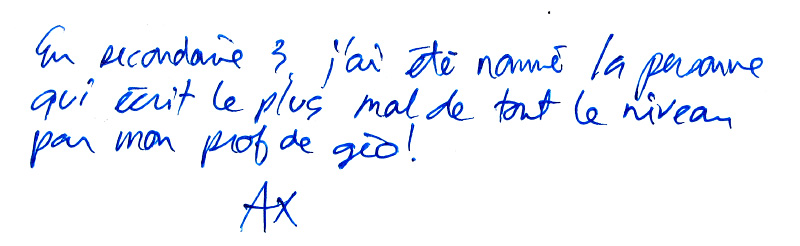 En secondaire 3, j'ai été nommé la personne
qui écrit le plus mal de tout le niveau
par mon prof de géo!
AX